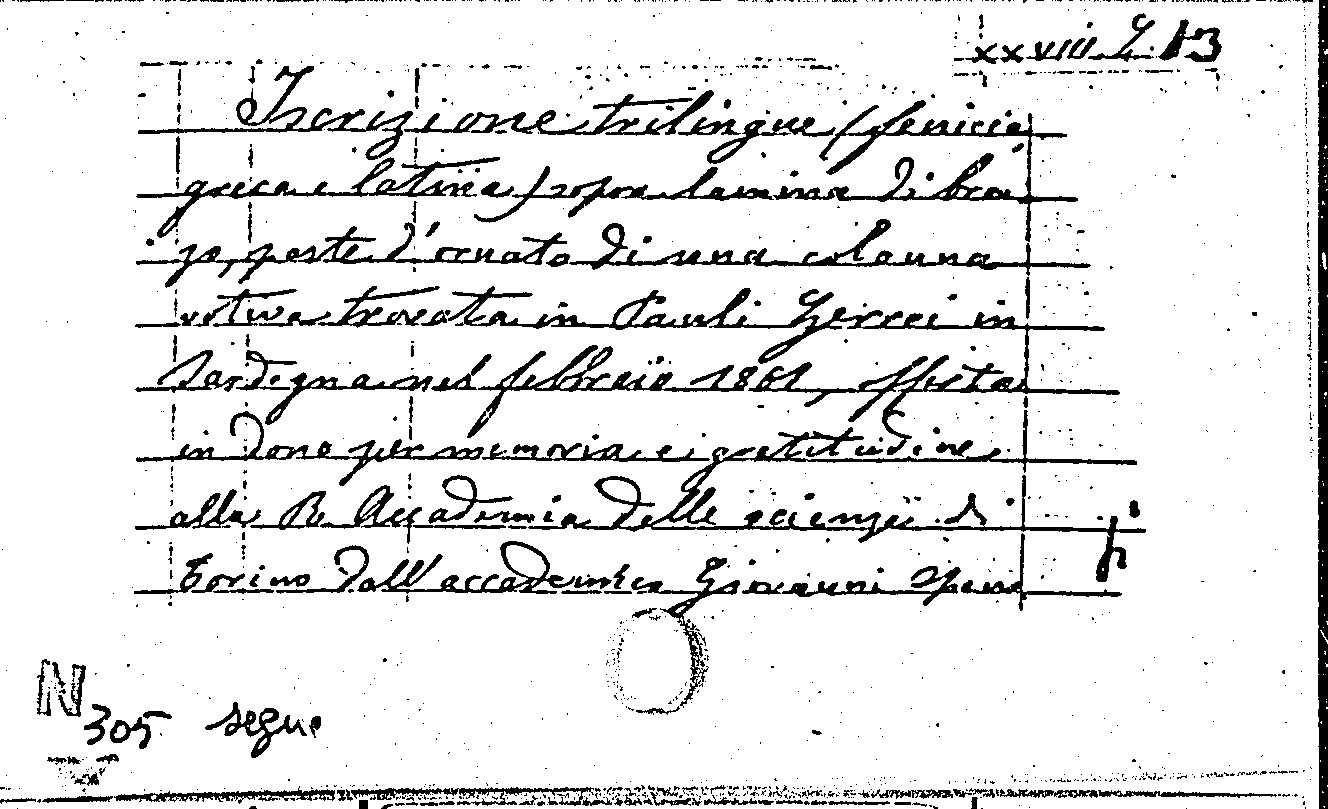 xxviii Z. 13
Iscrizione trilingue (fenicia
greca e latina) sopra lamina di bron
zo, parte d'ornato di una colonna
votiva trovata in Pauli Gerrei in
Sardegna nel febbraio 1861, offerta
in dono per memoria e gratitudine
alla R. Accademia delle scienze di
Torino dall'accademico Giovanni Spano
N
305 segue